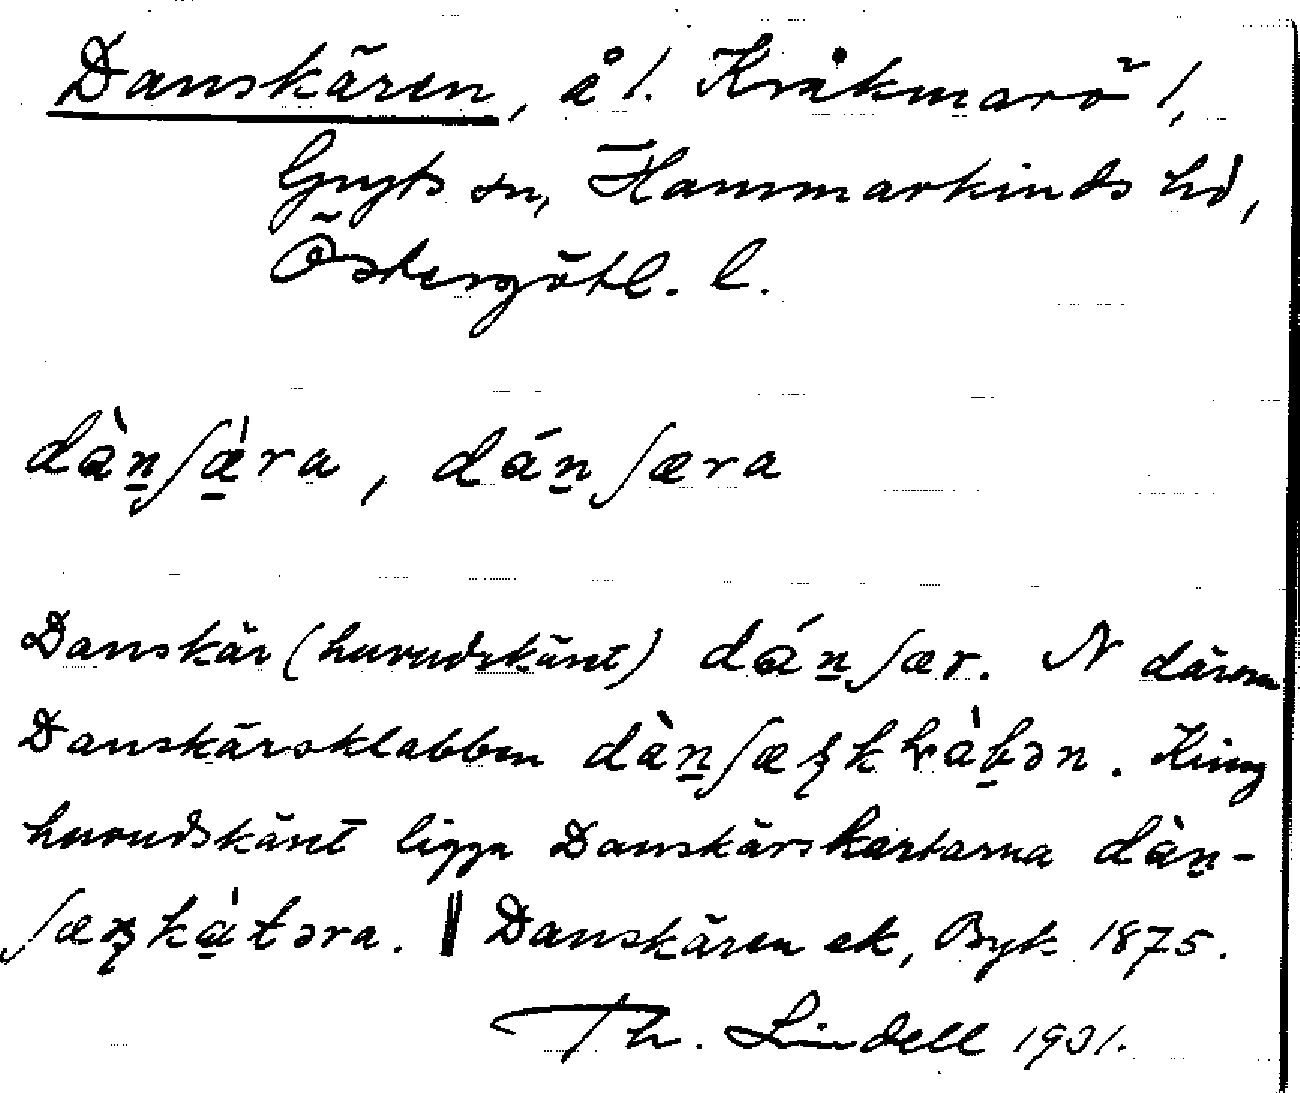 Danskären, å 1. Kråkmarö 1,
Gryts sn, Hammarkinds hd,
Östergötl. l.
dàn̲ʃæ̲̀ra, dán̲ʃæra
Danskär (huvudskäret) dán̲ʃær. N därom
Danskärsklabben dàn̲ʃæʂkḷàb̲ən. Kring
huvudskäret ligga Danskärskartarna dàn̲-
ʃæʂkà̲ʈəra. ‖ Danskären ek, Byk 1875.
Th. Lindell 1931.